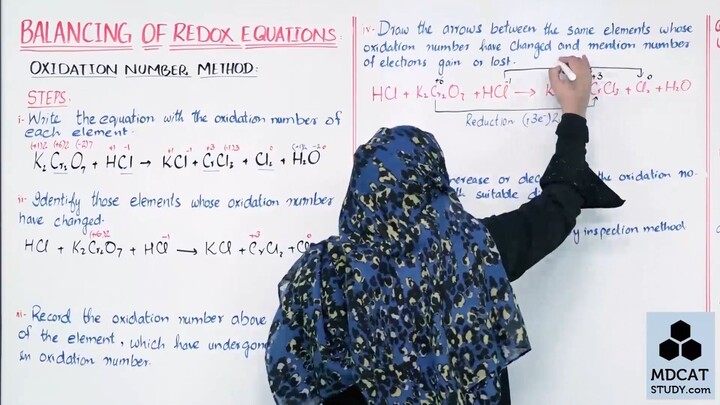 BALANCING OF REDOX EQUATIONS.
OXIDATION NUMBER METHOD:
STEPS.
i- Write the equation with the oxidation number of
each element.
(+1)2 (+6)2 (-2)7 +1 -1 +1 -1 +3 -1 0 (+1)2 -2
K2Cr2O7 + HCl → KCl + CrCl3 + Cl2 + H2O
ii- Identify those elements whose oxidation number
have changed.
(+6)2 -1 +3 0
HCl + K2Cr2O7 + HCl → KCl + CrCl3 + Cl
iii- Record the oxidation number above
of the element, which have undergon
in oxidation number.
iv- Draw the arrows between the same elements whose
oxidation number have changed and mention number
of electrons gain or lost.
+6 -1 +3 0
HCl + K2Cr2O7 + HCl → K CrCl3 + Cl2 + H2O
Reduction (+3e-)2
increase or dec the oxidation no.
suitable di
by inspection method
MDCAT
STUDY.com